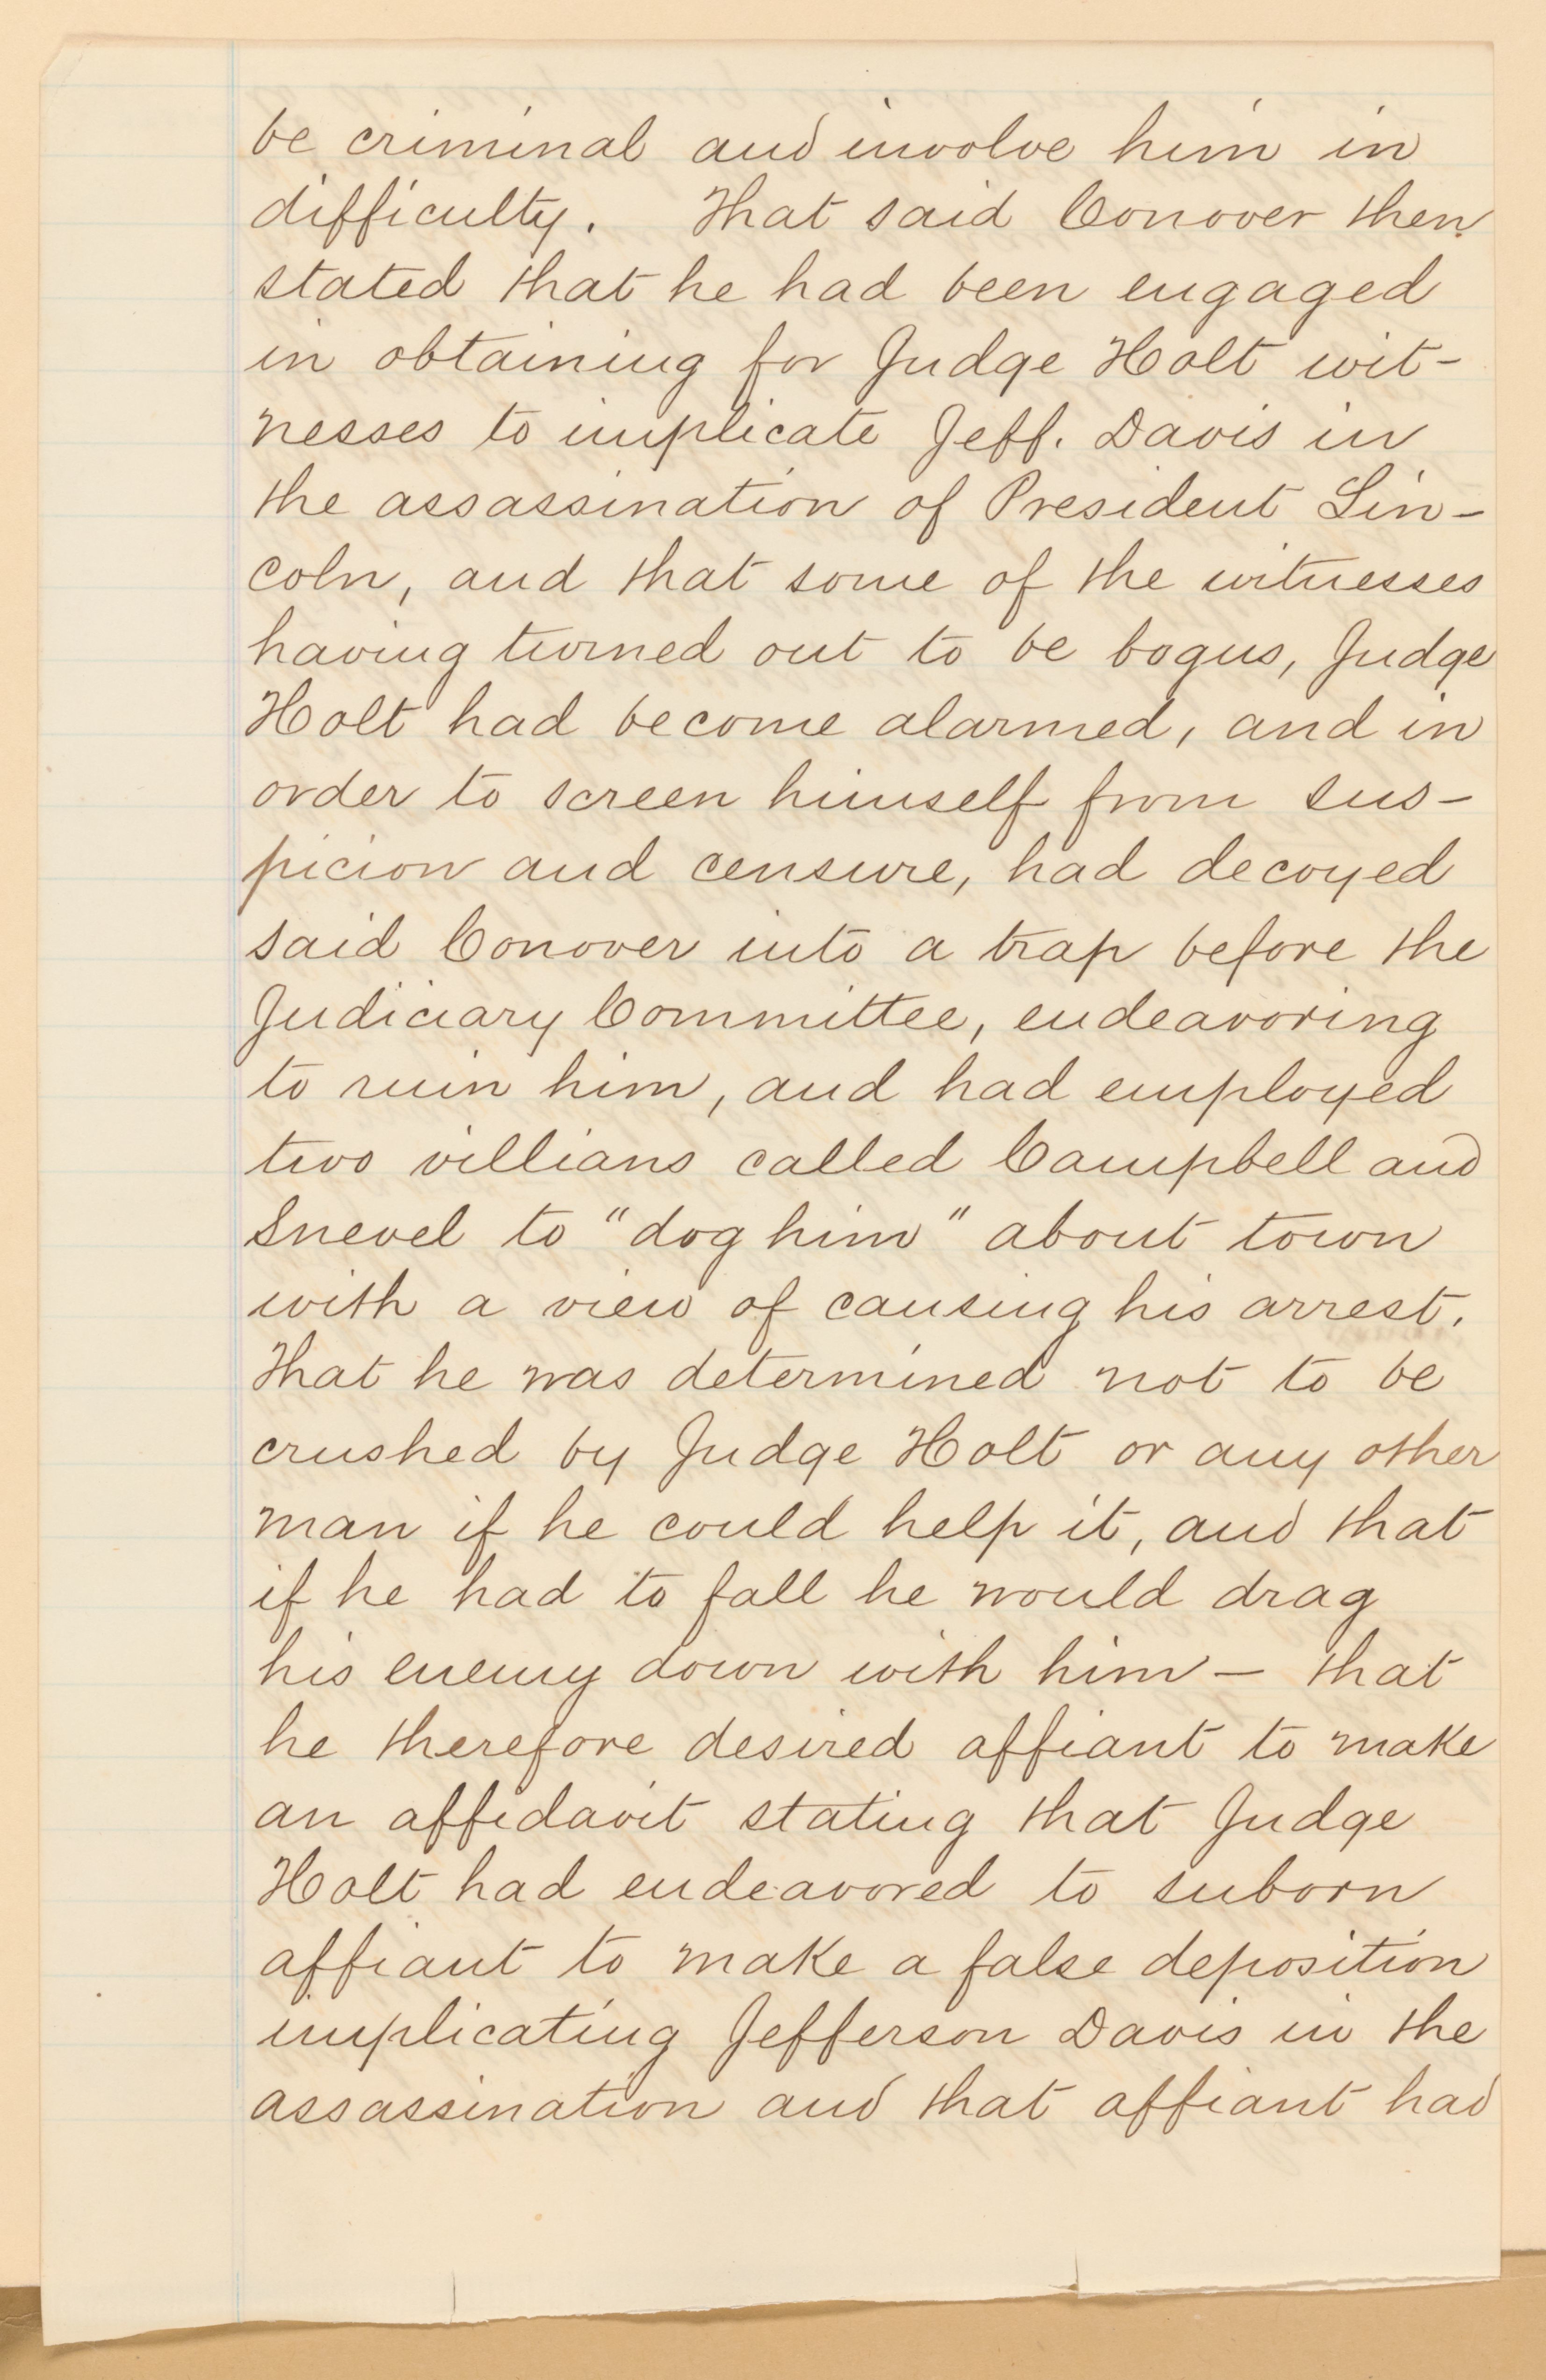 be criminal and involve him in
difficulty. That said Conover then
stated that he had been engaged
in obtaining for Judge Holt wit-
nesses to implicate Jeff. Davis in
the assassination of President Lin-
coln, and that some of the witnesses
having turned out to be bogus, Judge
Holt had become alarmed, and in
order to screen himself from sus-
picion and censure, had decoyed
said Conover into a trap before the
Judiciary Committee, endeavoring
to ruin him, and had employed
two villians called Campbell and
Snevel to "dog him" about town
with a view of causing his arrest.
That he was determined not to be
crushed by Judge Holt or any other
man if he could help it, and that
if he had to fall he would drag
his enemy down with him - that
he therefore desired affiant to make
an affidavit stating that Judge
Holt had endeavored to suborn
affiant to make a false deposition
implicating Jefferson Davis in the
assassination and that affiant had